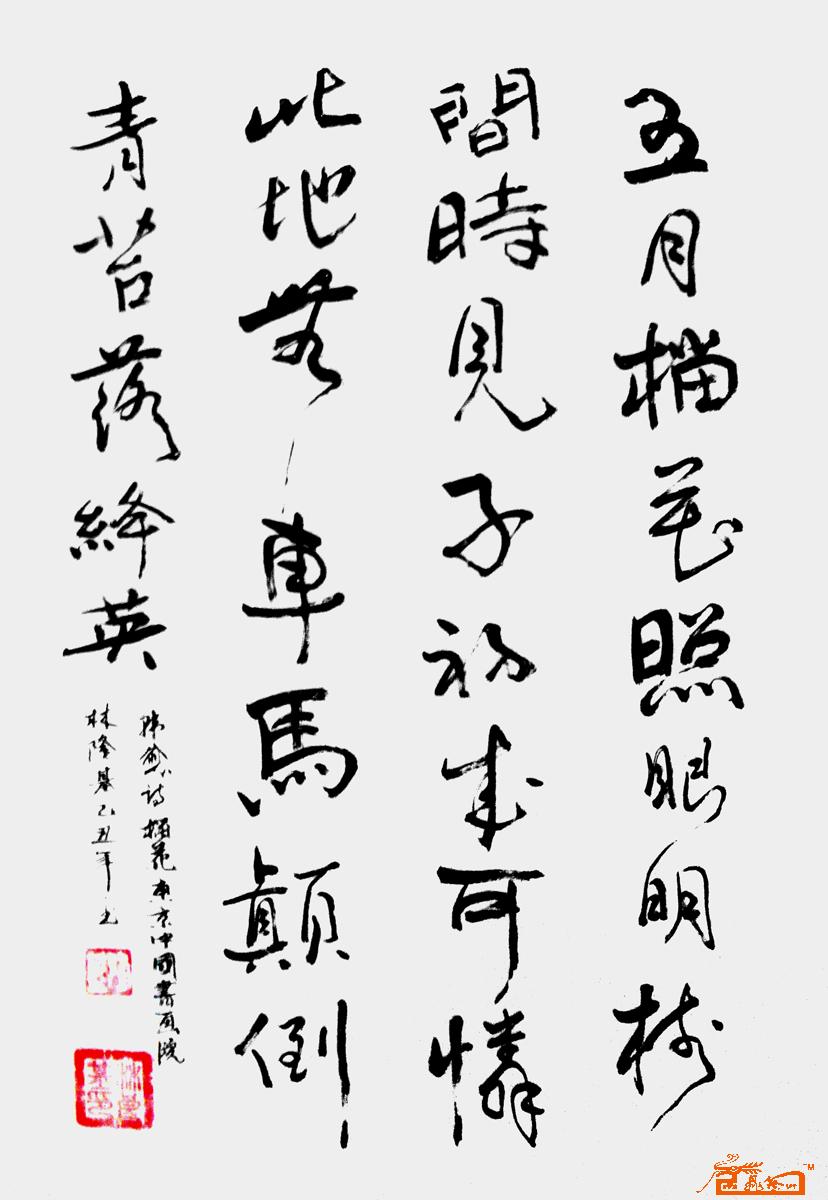 五月榴花照眼明枝
間時見子初成可憐
此地無車馬顛倒
青苔落絳英
韩愈诗榴花南京中國書画院
林隆基己丑年书